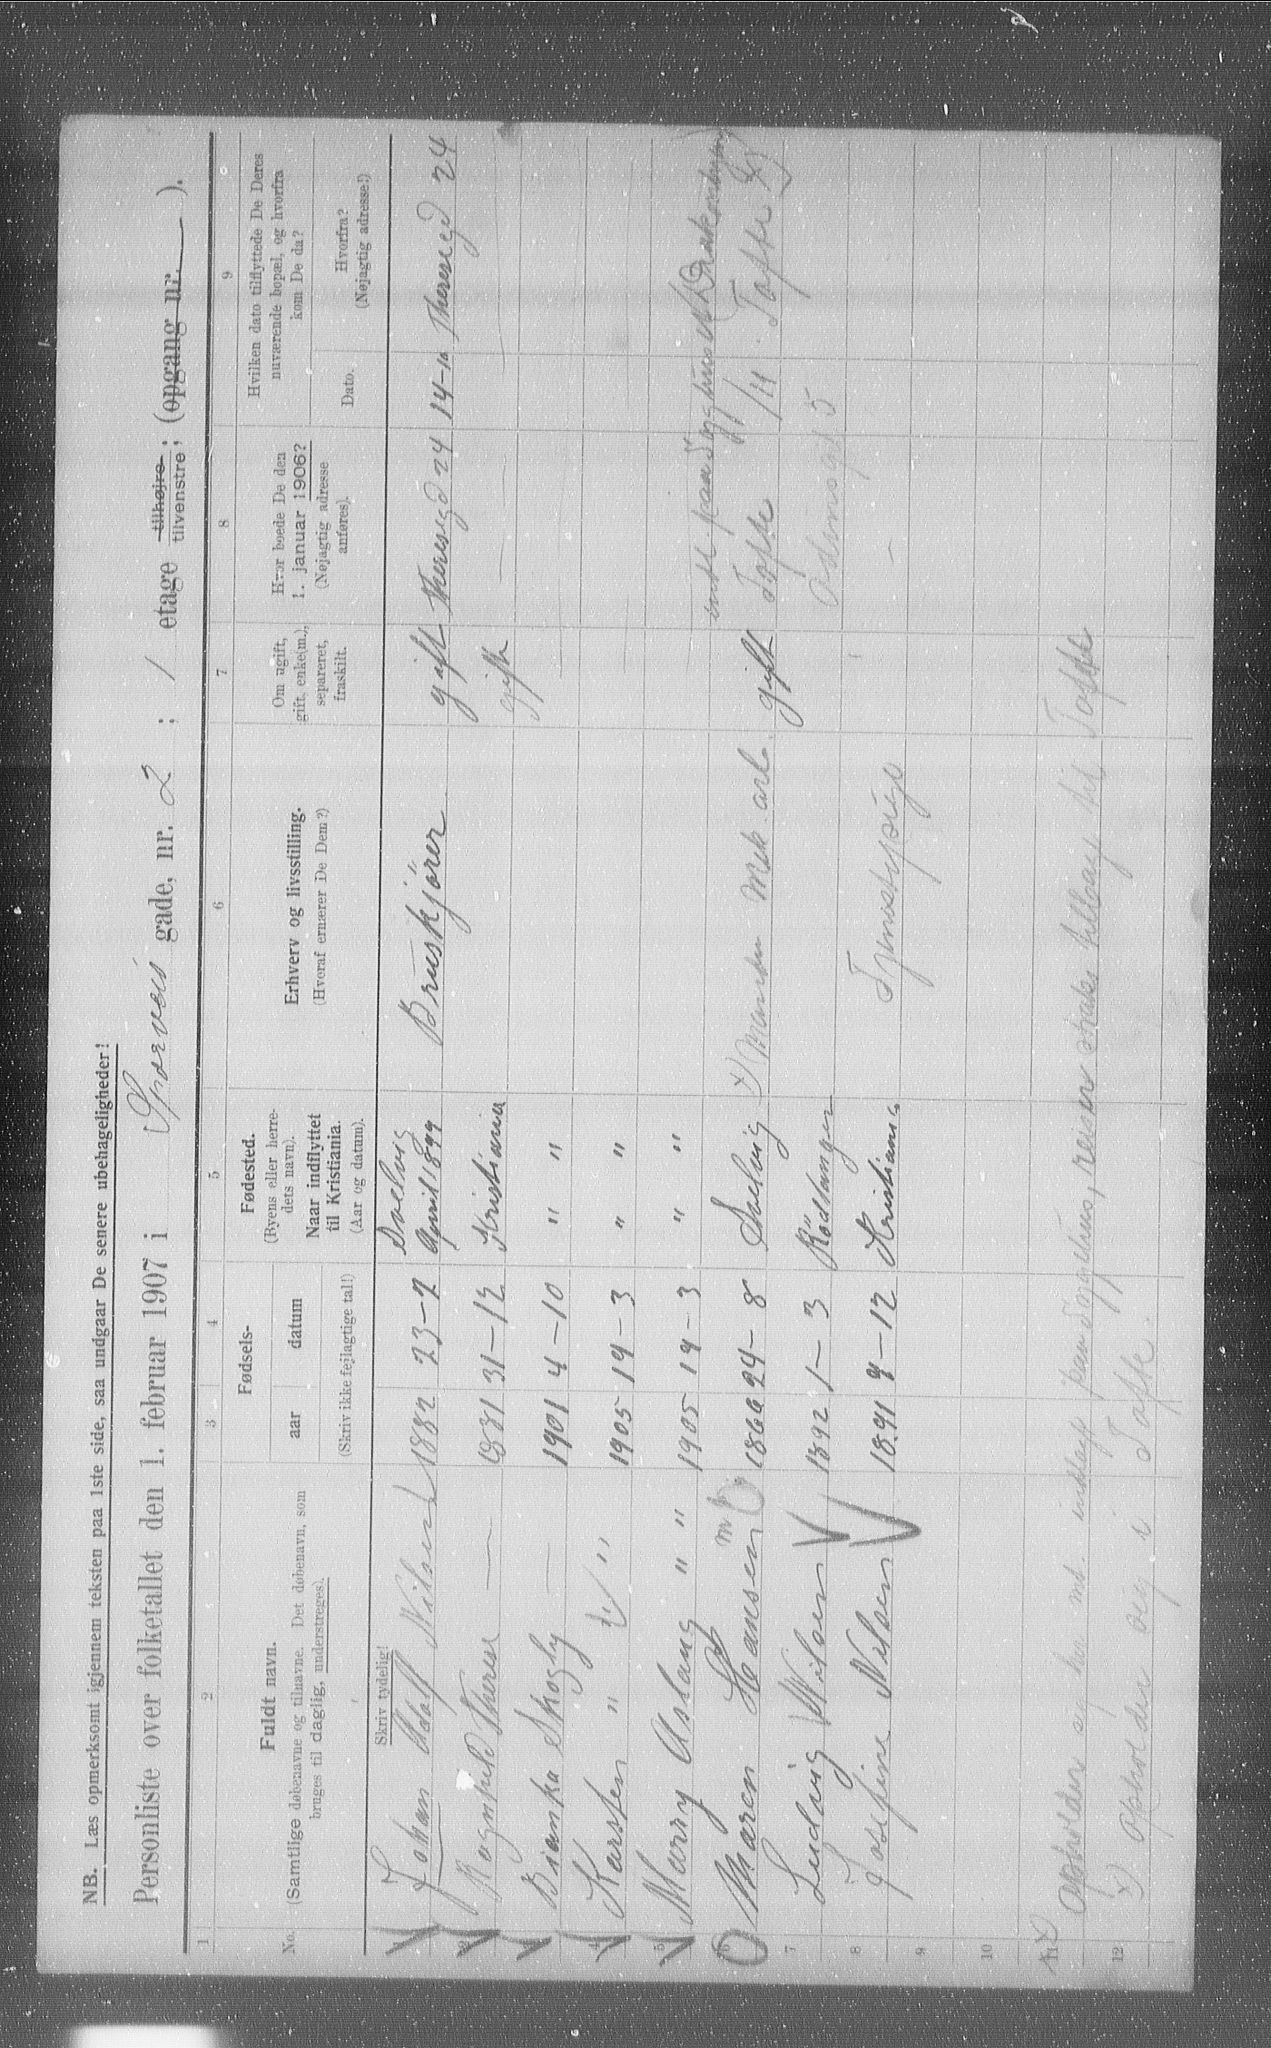 NB. Læs opmerksomt igjennem teksten paa 1ste side, saa undgaar De senere ubehageligheder!
Personliste over folketallet den 1. februar 1907 i Sporveis gade, nr. 2 ; 1 etage tilhøjre tilvenstre; (opgang nr. — ).
1 2 3 4 5 6 7 8 9
No.
Fuldt navn.
(Samtlige døbenavne og tilnavne. Det døbenavn, som
bruges til daglig, understreges).
Fødsels-
aar datum
(Skriv ikke fejlagtige tal!)
Fødested.
(Byens eller herre-
dets navn).
Naar indflyttet
til Kristiania.
(Aar og datum).
Erhverv og livsstilling.
(Hvoraf ernærer De Dem?)
Om ugift,
gift, enke(m.),
separeret,
fraskilt.
Hvor boede De den
1. januar 1906?
(Nøjagtig adresse
anføres).
Hvilken dato tilflyttede De Deres
nuværende bopæl, og hvorfra
kom De da?
Dato.
Hvorfra?
(Nøjagtig adresse!)
Skriv tydelig!
1 Johan Adolf Nilsen 1882 23-2 Svelvig April 1899 Bruskjører gift Theresegd 24 14-10 Theresegd 24
2 Ragnhild Therese — 1881 31-12 Kristiania gift —
3 Bianka Skogly — 1901 4-10 " "
4 Karsten " " 1905 19-3 " "
5 Marry Aslaug " " 1905 19-3 " "
6 Maren Hansen 1866 24-8 Svelvig x) Manden Mek arb. gift Tofte /11 Tofte
7 Ludvig Nilsen 1892 1-3 Rødtangen 5
8 Josefine Nilsen 1891 8-12 Kristiania —
9
10
11 Opholder sig her mt. indlagt paa Sygehus, reiser straks tilbage til Tofte
12 x) Opholder sig i Tofte.